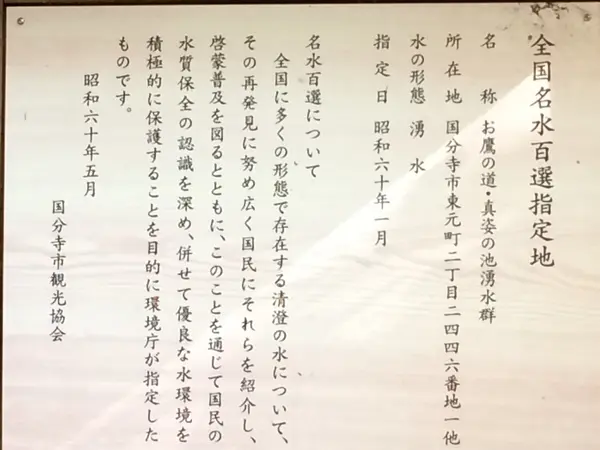 全国名水百選指定地
名称 お鷹の道・真姿の池湧水群
所在地 国分寺市東元町二丁目二四四六番地一他
水の形態 湧水
指定日 昭和六十年一月
名水百選について
全国に多くの形態で存在する清澄の水について、
その再発見に努め広く国民にそれらを紹介し、
啓蒙普及を図るとともに、このことを通じて国民の
水質保全の認識を深め、併せて優良な水環境を
積極的に保護することを目的に環境庁が指定した
ものです。
昭和六十年五月
国分寺市観光協会